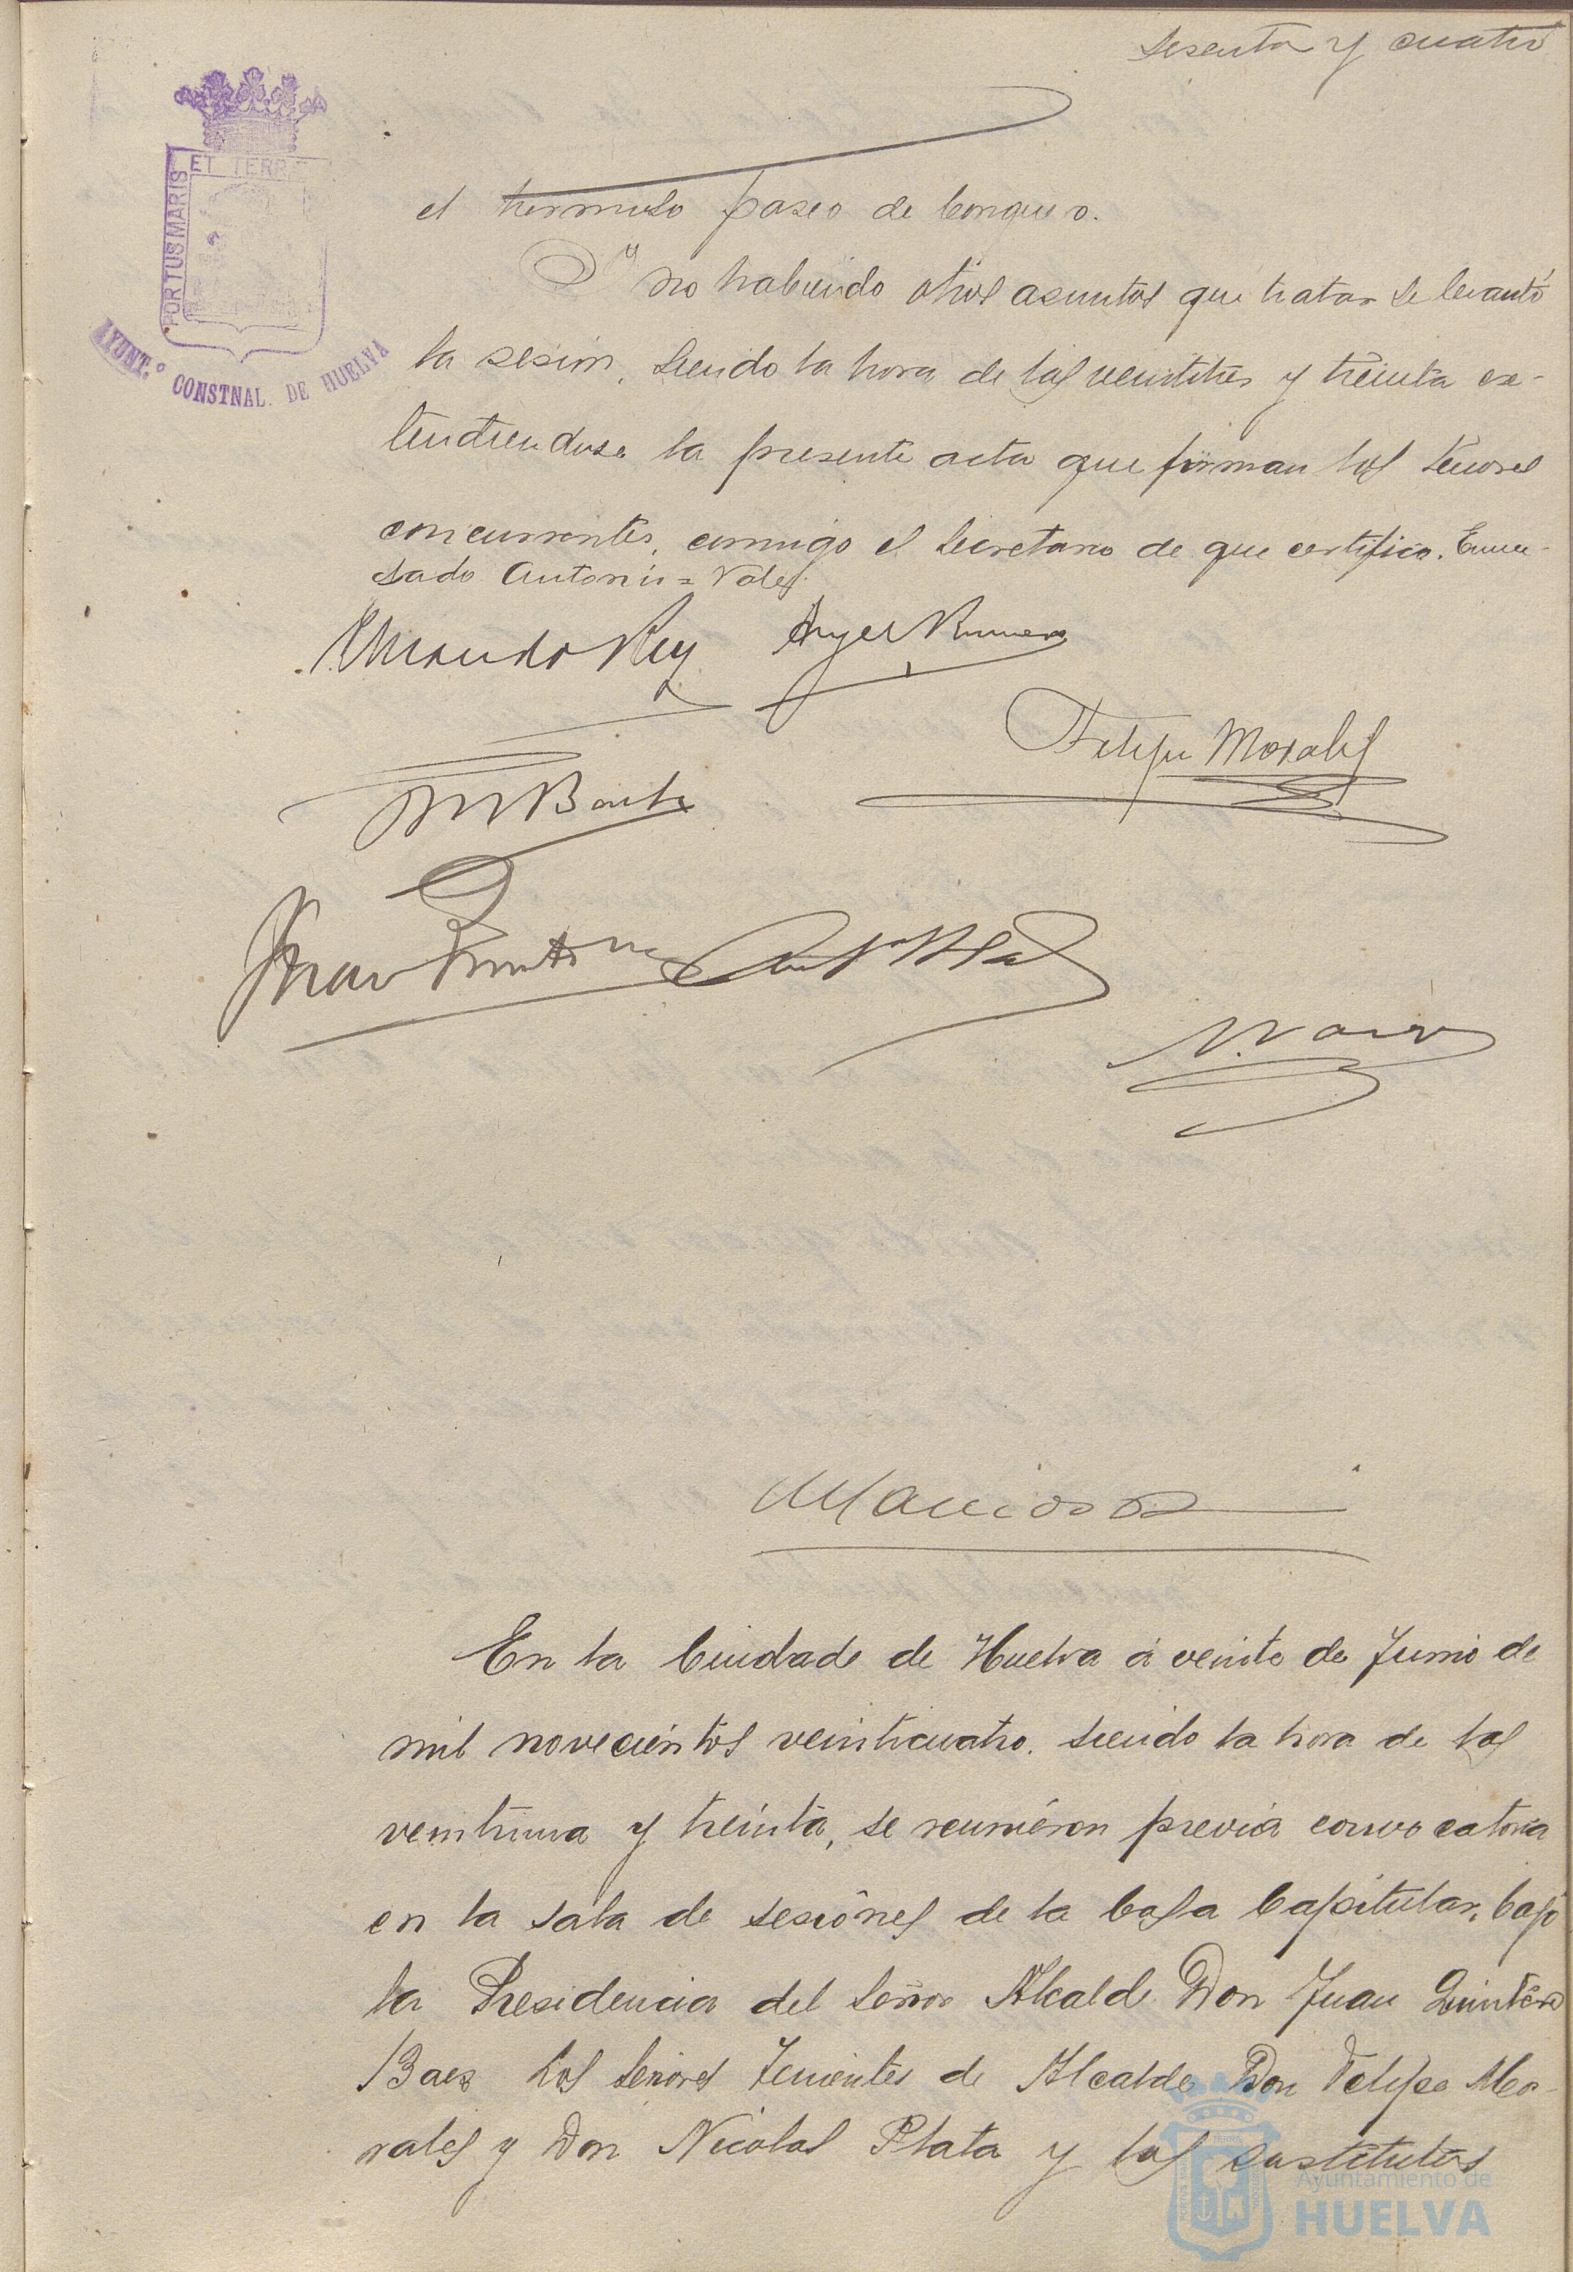 sesenta y cuatro
PORTUS MARIS ET TERR
AYUNT.º CONSTNAL. DE HUELVA
el hermoso paseo de Conquero.
Y no habiendo otros asuntos que tratar se levantó
la sesión, siendo la hora de las veintitres y treinta ex-
tendiendose la presente acta que firman los señores
concurrentes, conmigo el Secretario de que certifico. Enmen-
dado Antonio = Vale.
Felipe Morales
En la Ciudad de Huelva á veinte de Junio de
mil novecientos veinticuatro. siendo la hora de las
veintiuna y treinta, se reunieron previa convocatoria
en la sala de sesiones de la Casa Capitular, bajo
la Presidencia del Señor Alcalde Don Juan Quintero
Baez los Señores Tenientes de Alcalde Don Felipe Mo-
rales y Don Nicolas Plata y los sustitutos
Ayuntamiento de
HUELVA